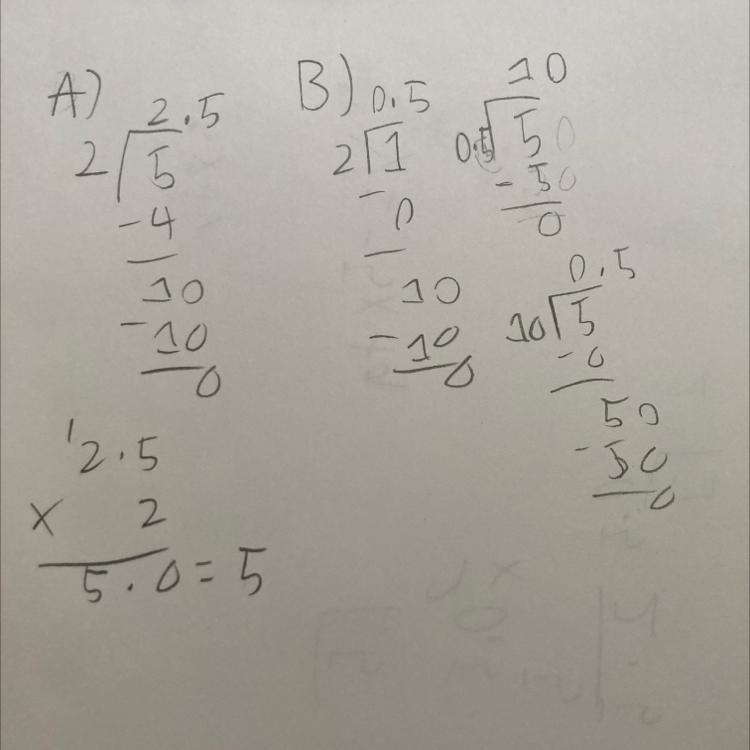 A)
2.5
2 5
-4
10
-10
0
'2.5
x 2
5.0=5
B)
0.5
2 1
- 0
10
-10
0
10
0.5 50
-50
0
0.5
10 5
-0
50
-50
0